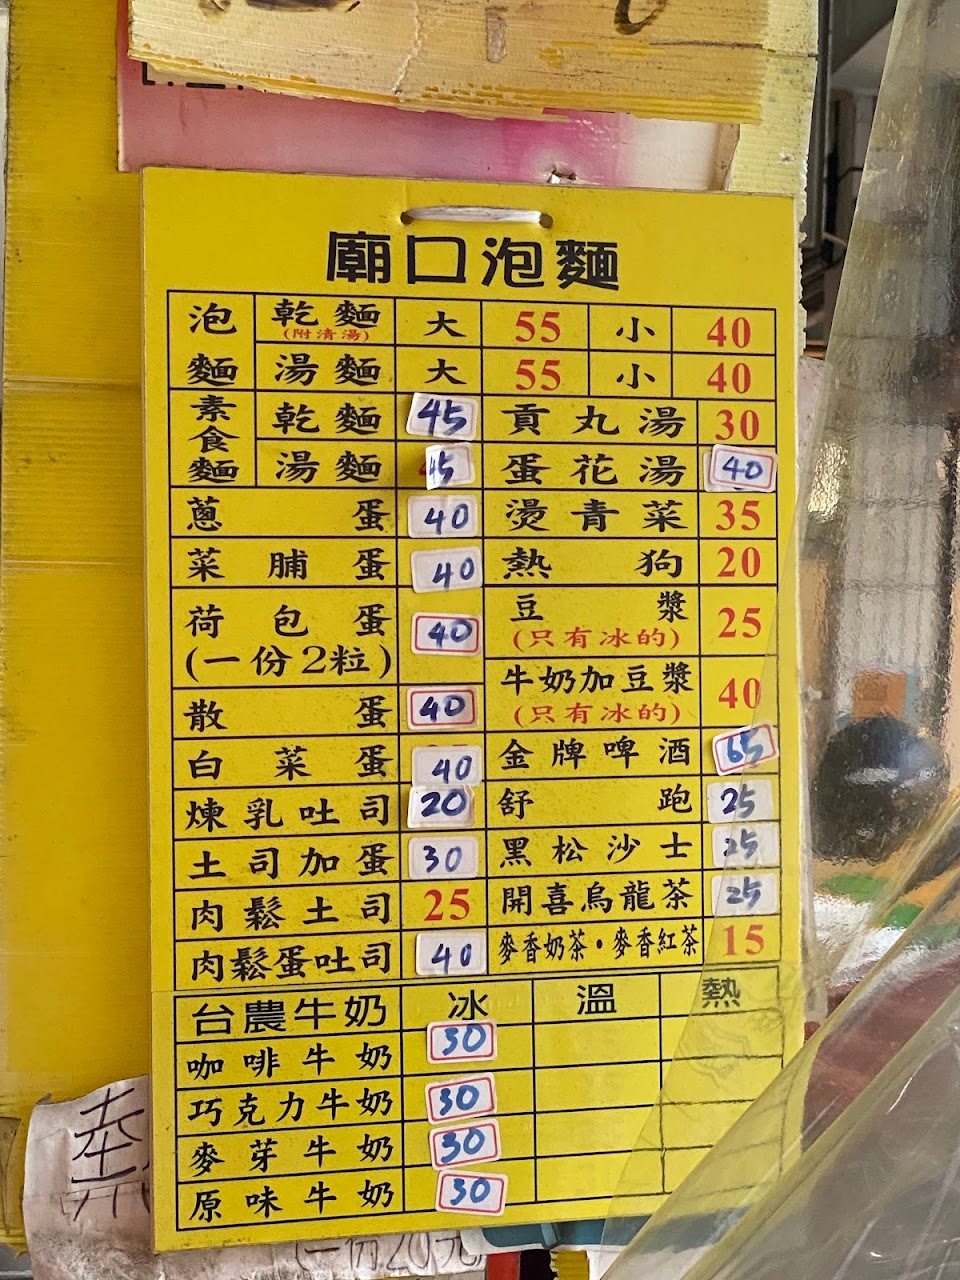 廟口泡麵
泡麵 乾麵 (附清湯) 大 55 小 40
湯麵 大 55 小 40
素食麵 乾麵 45 貢丸湯 30
湯麵 45 蛋花湯 40
蔥蛋 40 燙青菜 35
菜脯蛋 40 熱狗 20
荷包蛋 (一份2粒) 40 豆漿 (只有冰的) 25
散蛋 40 牛奶加豆漿 (只有冰的) 40
白菜蛋 40 金牌啤酒 65
煉乳吐司 20 舒跑 25
土司加蛋 30 黑松沙士 25
肉鬆土司 25 開喜烏龍茶 25
肉鬆蛋吐司 40 麥香奶茶・麥香紅茶 15
台農牛奶 冰 溫 熱
咖啡牛奶 30
巧克力牛奶 30
麥芽牛奶 30
原味牛奶 30
(一份20元)